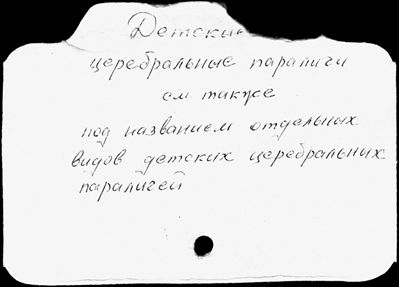 Детские
церебральные параличи
см также
под названием отдельных
видов детских церебральных
параличей